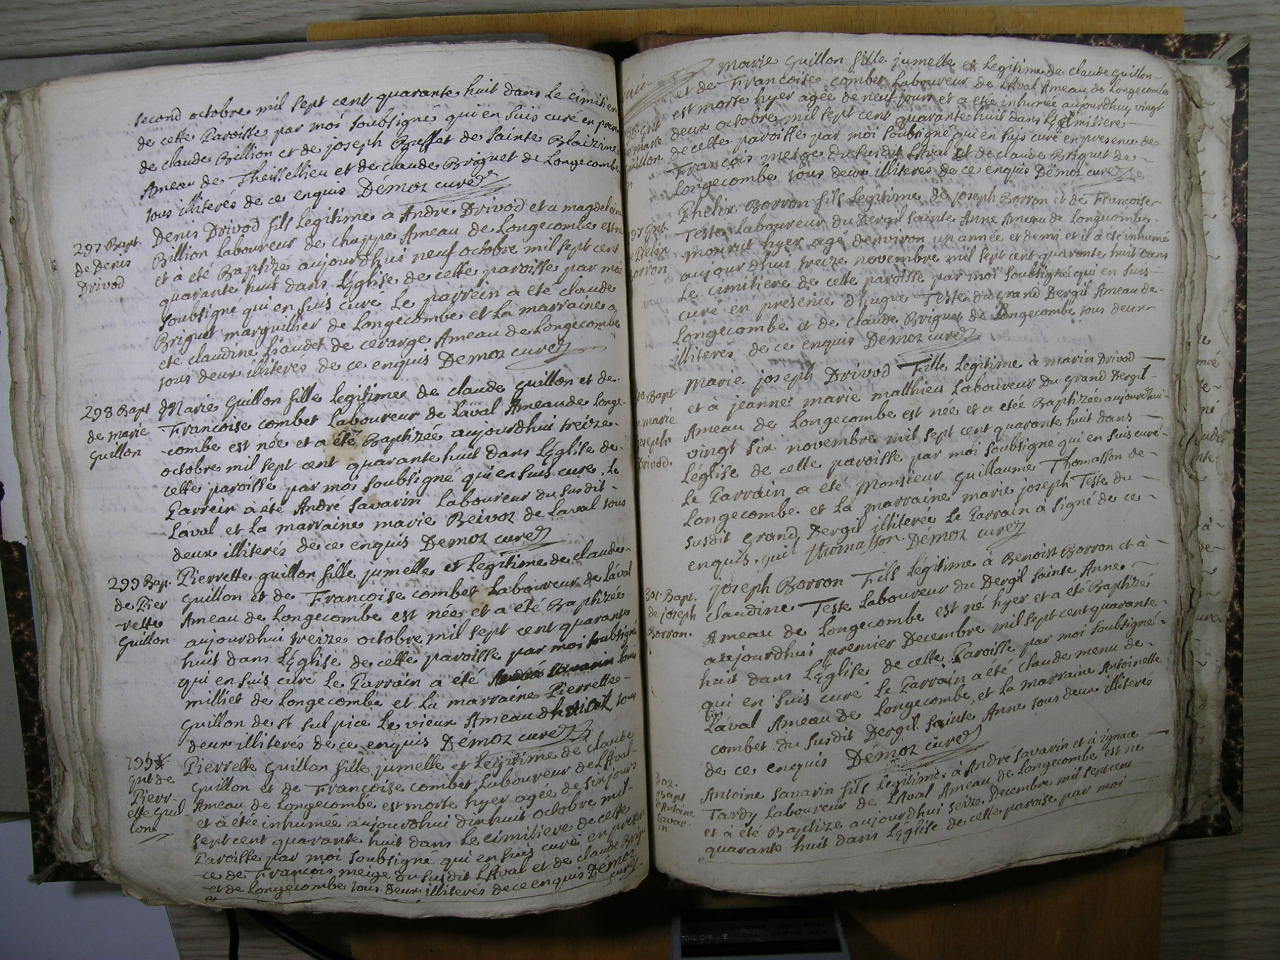 second octobre mil sept cent quarante huit dans le cimitiere
de cette Paroisse par moi soubsigné qui en suis curé en presence
de claude Billion et de joseph Baffat de sainte Blaizine
Ameau de Thezillieu et de claude Briguet de Longecombe
tous illiterés de ce enquis Démoz curé
297 Bapt.
de denis
Drivod
Denis Drivod fils Legitime à André Drivod et a magdelaine
Billion Laboureur de chappe Ameau de Longecombe est né
et à été Baptizé aujourdhui neuf octobre mil sept cent
quarante huit dans Léglise de cette paroisse par moi
soubsigné qui en suis curé Le parrein à été claude
Briguet marguillier de Longecombe et La marraine a
été claudine de Ameau de Longecombe
tous deux illiterés de ce enquis Démoz curé
298 Bapt
de marie
Guillon
Marie Guillon fille Legitime de claude Guillon et de
Françoise combet Laboureur de Laval Ameau de Longe-
combe est née et a été Baptizée aujourdhui treize
octobre mil sept cent quarante huit dans L'Eglise de
cette paroisse par moi soubsigné qui en suis curé. Le
Parrein à été André savarin Laboureur du susdit
Laval et La marraine marie de Laval tous
deux illiterés de ce enquis Démoz curé
299 Bap.
de Pier
rette
Guillon
Pierrette guillon fille jumelle et Legitime de claude
Guillon et de Françoise combet Laboureur de Laval
Ameau de Longecombe est née et a été Baptizée
aujourdhui treize octobre mil sept cent quarante
huit dans L'Eglise de cette paroisse par moi soubsigné
qui en suis curé Le Parrain à été
milliet de Longecombe et La marraine Pierrette
Guillon de st sulpice Le vieux Ameau tous
deux illiterés de ce enquis Démoz curé
de
Pierr
ette Guil
lon
Pierrette Guillon fille jumelle et Legitime de claude
Guillon et de Françoise combet Laboureur de LAval
Ameau de Longecombe est morte hyer agée de six jours
et à été inhumée aujourdhui dix huit octobre mil
sept cent quarante huit dans Le cimitiere de cette
Paroisse par moi soubsigné qui en suis curé en presen
ce de François meige du susdit LAval et de claude Briguet
et de Longecombe tous deux illiterés de ce enquis Démoz
curé
Marie Guillon fille jumelle et Legitime de claude Guillon
et de Françoise combet Laboureur de LAval Ameau de Longecombe
est morte hyer agée de neuf jours et a été inhumée aujourdhuy vingt
deux octobre mil sept cent quarante huit dans Le cimitiere
de cette paroisse par moi soubsigné qui en suis curé en presence de
François meige du susdit LAval et de claude Briguet de
Longecombe tous deux illiteres de ce enquis Démoz curé
Phelix Borron fils Legitime de Joseph Borron et de Françoise
Teste Laboureur du Dergil sainte Anne Ameau de Longecombe
mourut hyer agé denviron un année et demi et il a été inhumé
aujourdhui treize novembre mil sept cent quarante huit dans
Le cimitiere de cette paroisse par moi soubsigné qui en suis
curé en presence d'hugue Teste du grand Dergil Ameau de
Longecombe et de claude Briguet de Longecombe tous deux
illiterés de ce enquis Démoz curé
Bapt
marie
joseph
Drivod.
Marie joseph Drivod Fille Legitime à marin Drivod
et à jeanne marie matthieu Laboureur du grand Dergil
Ameau de Longecombe est née et a étée Baptizée aujourdhui
vingt six novembre mil sept cent quarante huit dans
Léglise de cette paroisse par moi soubsigné qui en suis curé
Le Parrain a été Monsieur Guillaume Thomasson de
Longecombe et La marraine marie joseph Teste du
susdit Grand Dergil illiterée Le Parrain à signé de ce
enquis. Thomasson Démoz curé
301 Bapt.
de joseph
Borron.
Joseph Borron Fils Legitime à Benoist Borron et à
claudine Teste Laboureur du Dergil sainte Anne
Ameau de Longecombe est né hyer et a été Baptizé
aujourdhui premier Decembre mil sept cent quarante
huit dans L'Eglise de cette Paroisse par moi soubsigné
qui en suis curé Le Parrain à été claude menu de
Laval Ameau de Longecombe, et La marraine Antoinette
combet du susdit Dergil sainte Anne tous deux illiterés
de ce enquis Démoz curé
302.
Bapt
d'Antoine
Savar
in
Antoine Savarin fils Legitime à André Savarin et à ignace
Tardy Laboureur de LAval Ameau de Longecombe est né
et à été Baptizé aujourdhui seize Decembre mil sept cent
quarante huit dans L'Eglise de cette paroisse par moi